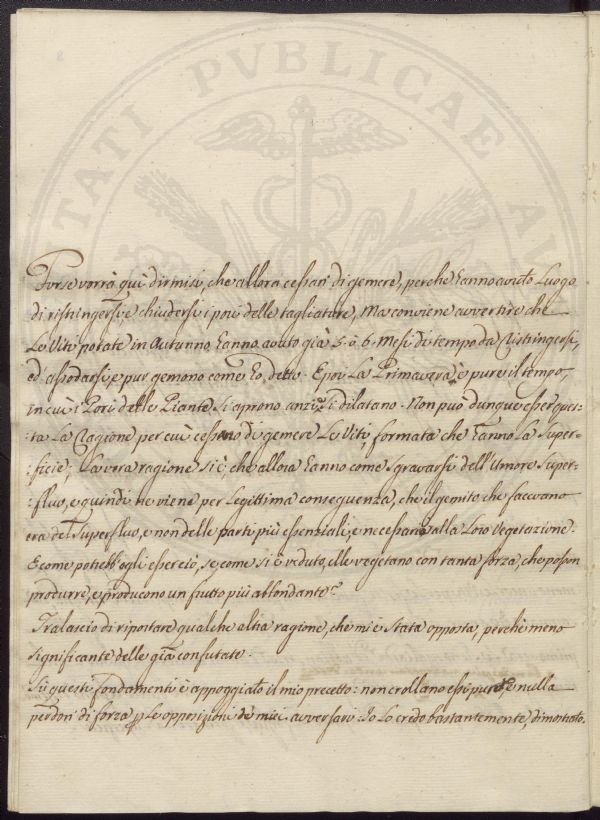 TATI PVBLICAE
Forse vorrà quì dirmisi, che allora cessan di gemere, perche hanno avuto Luogo
di ristringersi, e chiudersi i pori delle tagliature, Ma conviene avvertire che
Le Viti potate in Autunno, hanno avuto già 5. o 6. Mesi di tempo da Ristringersi,
ed assodarsi, e pur gemono come ho detto. E poi La Primavera è pure il tempo,
in cui i Pori delle Piante si aprono anzi si dilatano. Non può dunque esser ques-
ta La Cagione per cui cessano di gemere Le Viti, formata che hanno La super-
:ficie; La vera ragione si è, che allora hanno come sgravarsi dell'Umore super-
:fluo, e quindi ne viene per Legittima conseguenza, che il gemito che facevano
era del superfluo, e non delle parti più essenziali, e necessarie alla Loro Vegetazione.
E come potrebb'egli esser ciò, se come si è veduto, elle vegetano con tanta forza, che posson
produrre, e producono un frutto più abbondante?
Tralascio di riportare qualche altra ragione, che mi è stata opposta, perchè meno
significante delle già confutate.
Sù questi fondamenti è appoggiato il mio precetto: non crollano essi pure, e nulla
perdon di forza p Le opposizioni de miei avversari. Io Lo credo bastantemente, dimostrato.